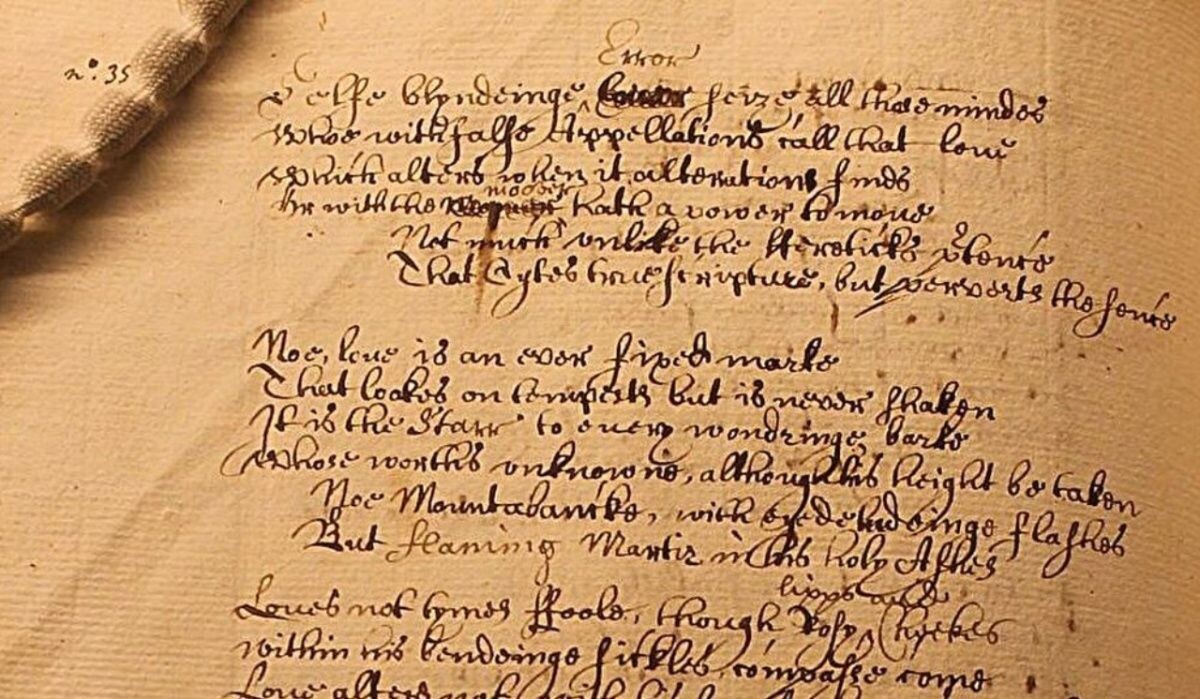 Error
nº. 35
Selfe blyndeinge seize all those mindes
Whoe with false Appellations call that love
Which alters when it alterations finds
mover
Or with the hath a power to move
Not much unlike the Hereticks ptence
That Cytes true scripture, but perverts the sence
Noe, love is an ever fixed marke
That lookes on tempests but is never shaken
It is the Starr to every wondringe barke
Whose worths unknowne, although his height be taken
Noe Mountabancke, with eyedeludeinge flashes
But flaming Martir in his holy Ashes
lipps and
Loves not tymes ffoole, though Rosy Cheekes
within his bendeinge sickles compasse come
Love alters not with